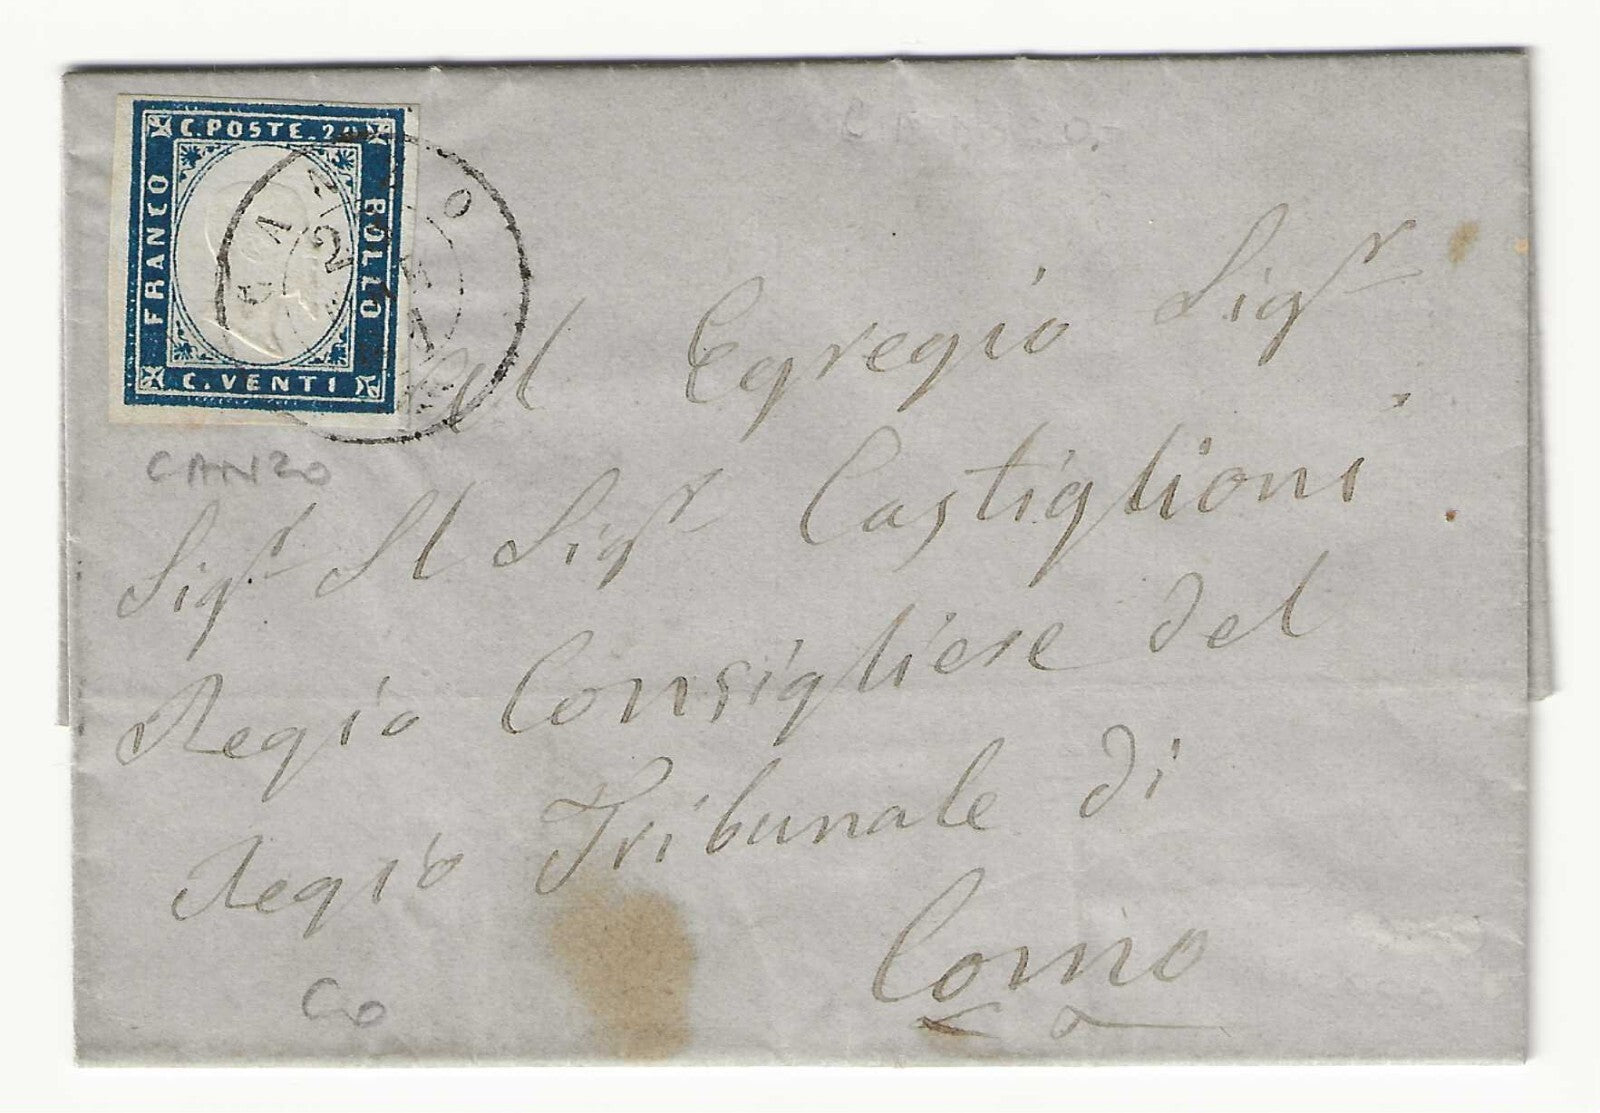 C. POSTE. 20
FRANCO
BOLLO
C. VENTI
CANZO
Al Egregio Sigr
Sigr Il Sigr Castiglioni
Regio Consigliere del
Regio Tribunale di
Como
Co